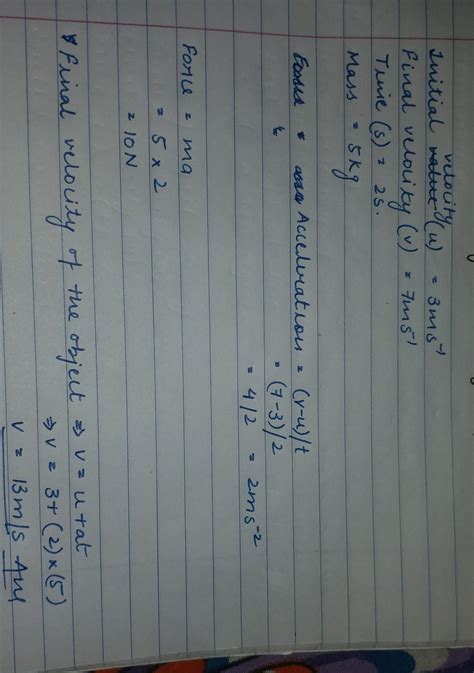 velocity
Initial value (u) = 3ms⁻¹
Final velocity (v) = 7ms⁻¹
Time (s) = 2s.
Mass = 5kg
Acceleration = (v-u)/t
= (7-3)/2
= 4/2 = 2ms⁻²
Force = ma
= 5 x 2
= 10N
Final velocity of the object ⇒ v = u + at
⇒ v = 3 + (2) x (5)
v = 13 m/s Ans